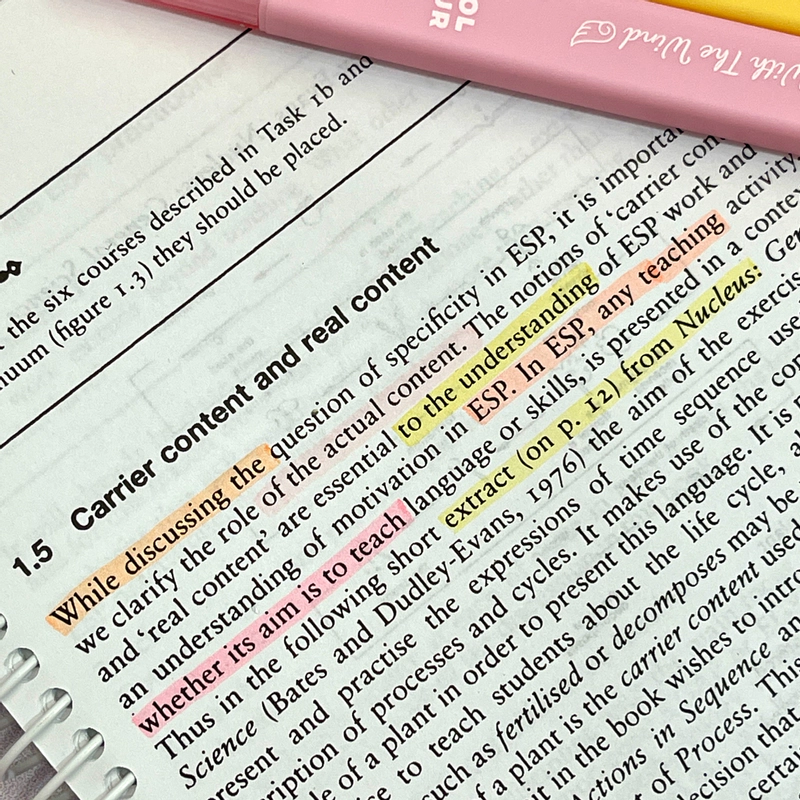 COL
OUR
With The Wind
the six courses described in Task 1b and
(figure 1.3) they should be placed.
1.5 Carrier content and real content
While discussing the question of specificity in ESP, it is
we clarify the role of the actual content. The notions of ‘carrier
and ‘real content’ are essential to the understanding of ESP work and
an understanding of motivation in ESP. In ESP, any teaching activity,
whether its aim is to teach language or skills, is presented in a
Thus in the following short extract (on p. 12) from Nucleus:
Science (Bates and Dudley-Evans, 1976) the aim of the
present and practise the expressions of time sequence
of processes and cycles. It makes use of the
of a plant in order to present this language. It is
to teach students about the life cycle,
such as fertilised or decomposes may be
a plant is the carrier content used
in the book wishes to
Actions in Sequence
of Process. This
that